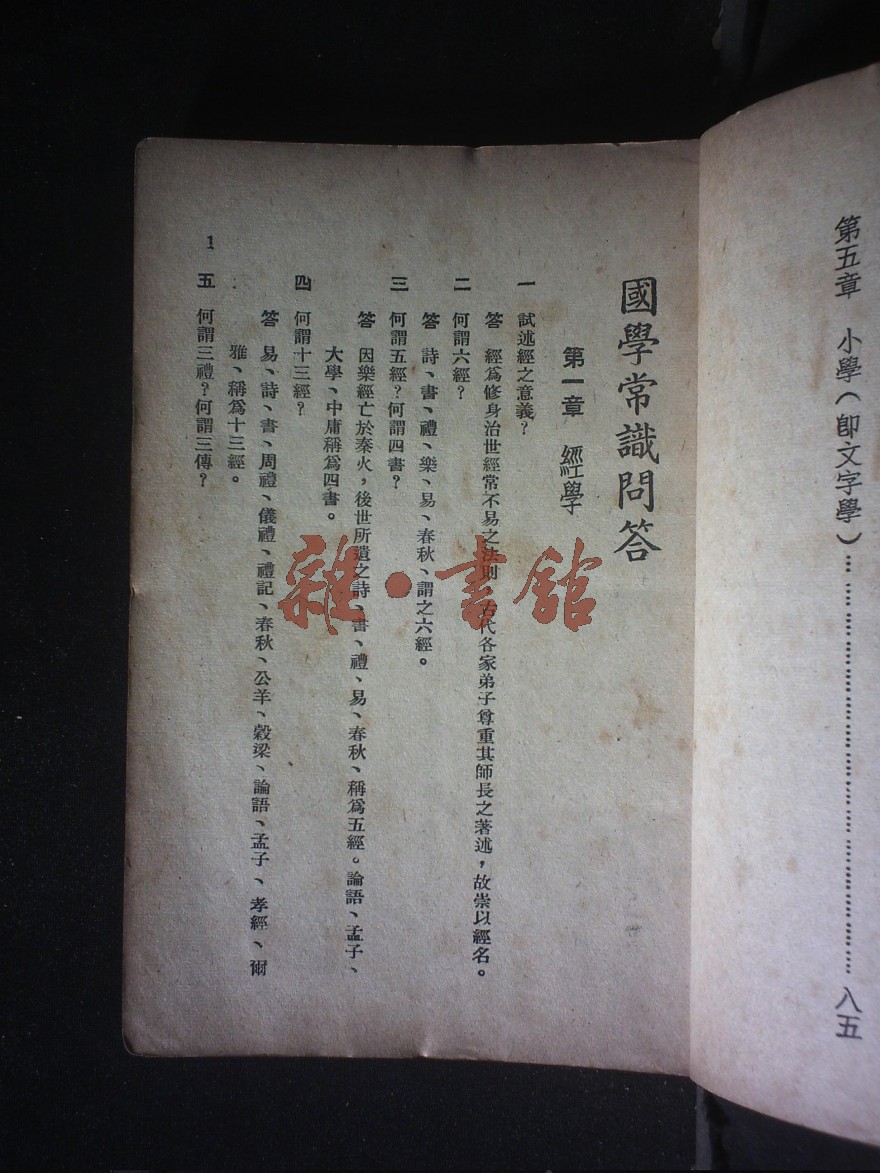 第五章　小學（卽文字學）……………………………………八五
國學常識問答
第一章　經學
一　試述經之意義？
答　經爲修身治世經常不易之法則，古代各家弟子尊重其師長之著述，故崇以經名。
二　何謂六經？
答　詩、書、禮、樂、易、春秋、謂之六經。
三　何謂五經？何謂四書？
答　因樂經亡於秦火，後世所遺之詩、書、禮、易、春秋、稱爲五經。論語、孟子、
大學、中庸稱爲四書。
四　何謂十三經？
答　易、詩、書、周禮、儀禮、禮記、春秋、公羊、穀梁、論語、孟子、孝經、爾
雅、稱爲十三經。
五　何謂三禮？何謂三傳？
1
雜·書館